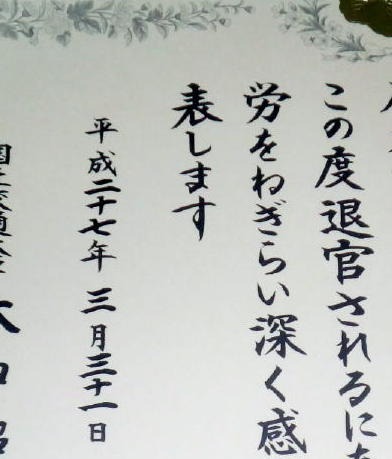 この度退官されるにあ
労をねぎらい深く感
表します
平成二十七年三月三十一日
国土交通大臣 太田昭